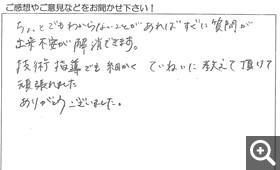 ご感想やご意見などをお聞かせ下さい!
ちょっとでもわからないことがあればすぐに質問が
出来不安が解消できます。
技術指導でも細かく ていねいに教えて頂けて
頑張れました
ありがとうございました。